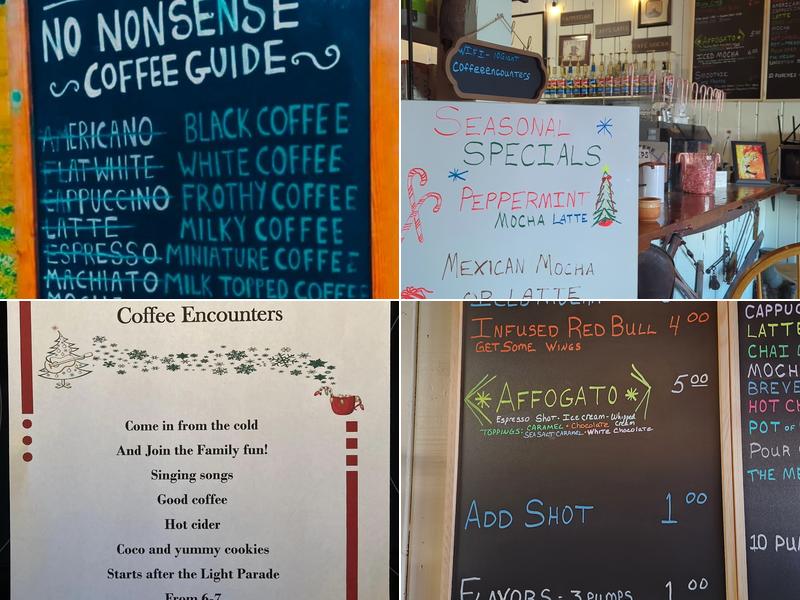 NO NONSENSE
COFFEE GUIDE
AMERICANO BLACK COFFEE
FLAT WHITE WHITE COFFEE
CAPPUCCINO FROTHY COFFEE
LATTE MILKY COFFEE
ESPRESSO MINIATURE COFFEE
MACHIATO MILK TOPPED COFFEE
WIFI-10GIGHT
Coffeeencounters
SEASONAL
SPECIALS
PEPPERMINT
MOCHA LATTE
MEXICAN MOCHA
OR LATTE
AFFOGATO
ICED MOCHA
SMOOTHIE
Coffee Encounters
Come in from the cold
And Join the Family fun!
Singing songs
Good coffee
Hot cider
Coco and yummy cookies
Starts after the Light Parade
From 6-7
INFUSED RED BULL 4 00
GET SOME WINGS
AFFOGATO 5 00
Espresso Shot - Ice cream - Whipped Cream
TOPPINGS: CARAMEL - Chocolate
SEA SALT CARAMEL - White Chocolate
ADD SHOT 1 00
FLAVORS - 3 PUMPS 1 00
CAPPUC
LATTE
CHAI
MOCH
BREVE
HOT CH
POT OF
POUR
THE ME
10 PU